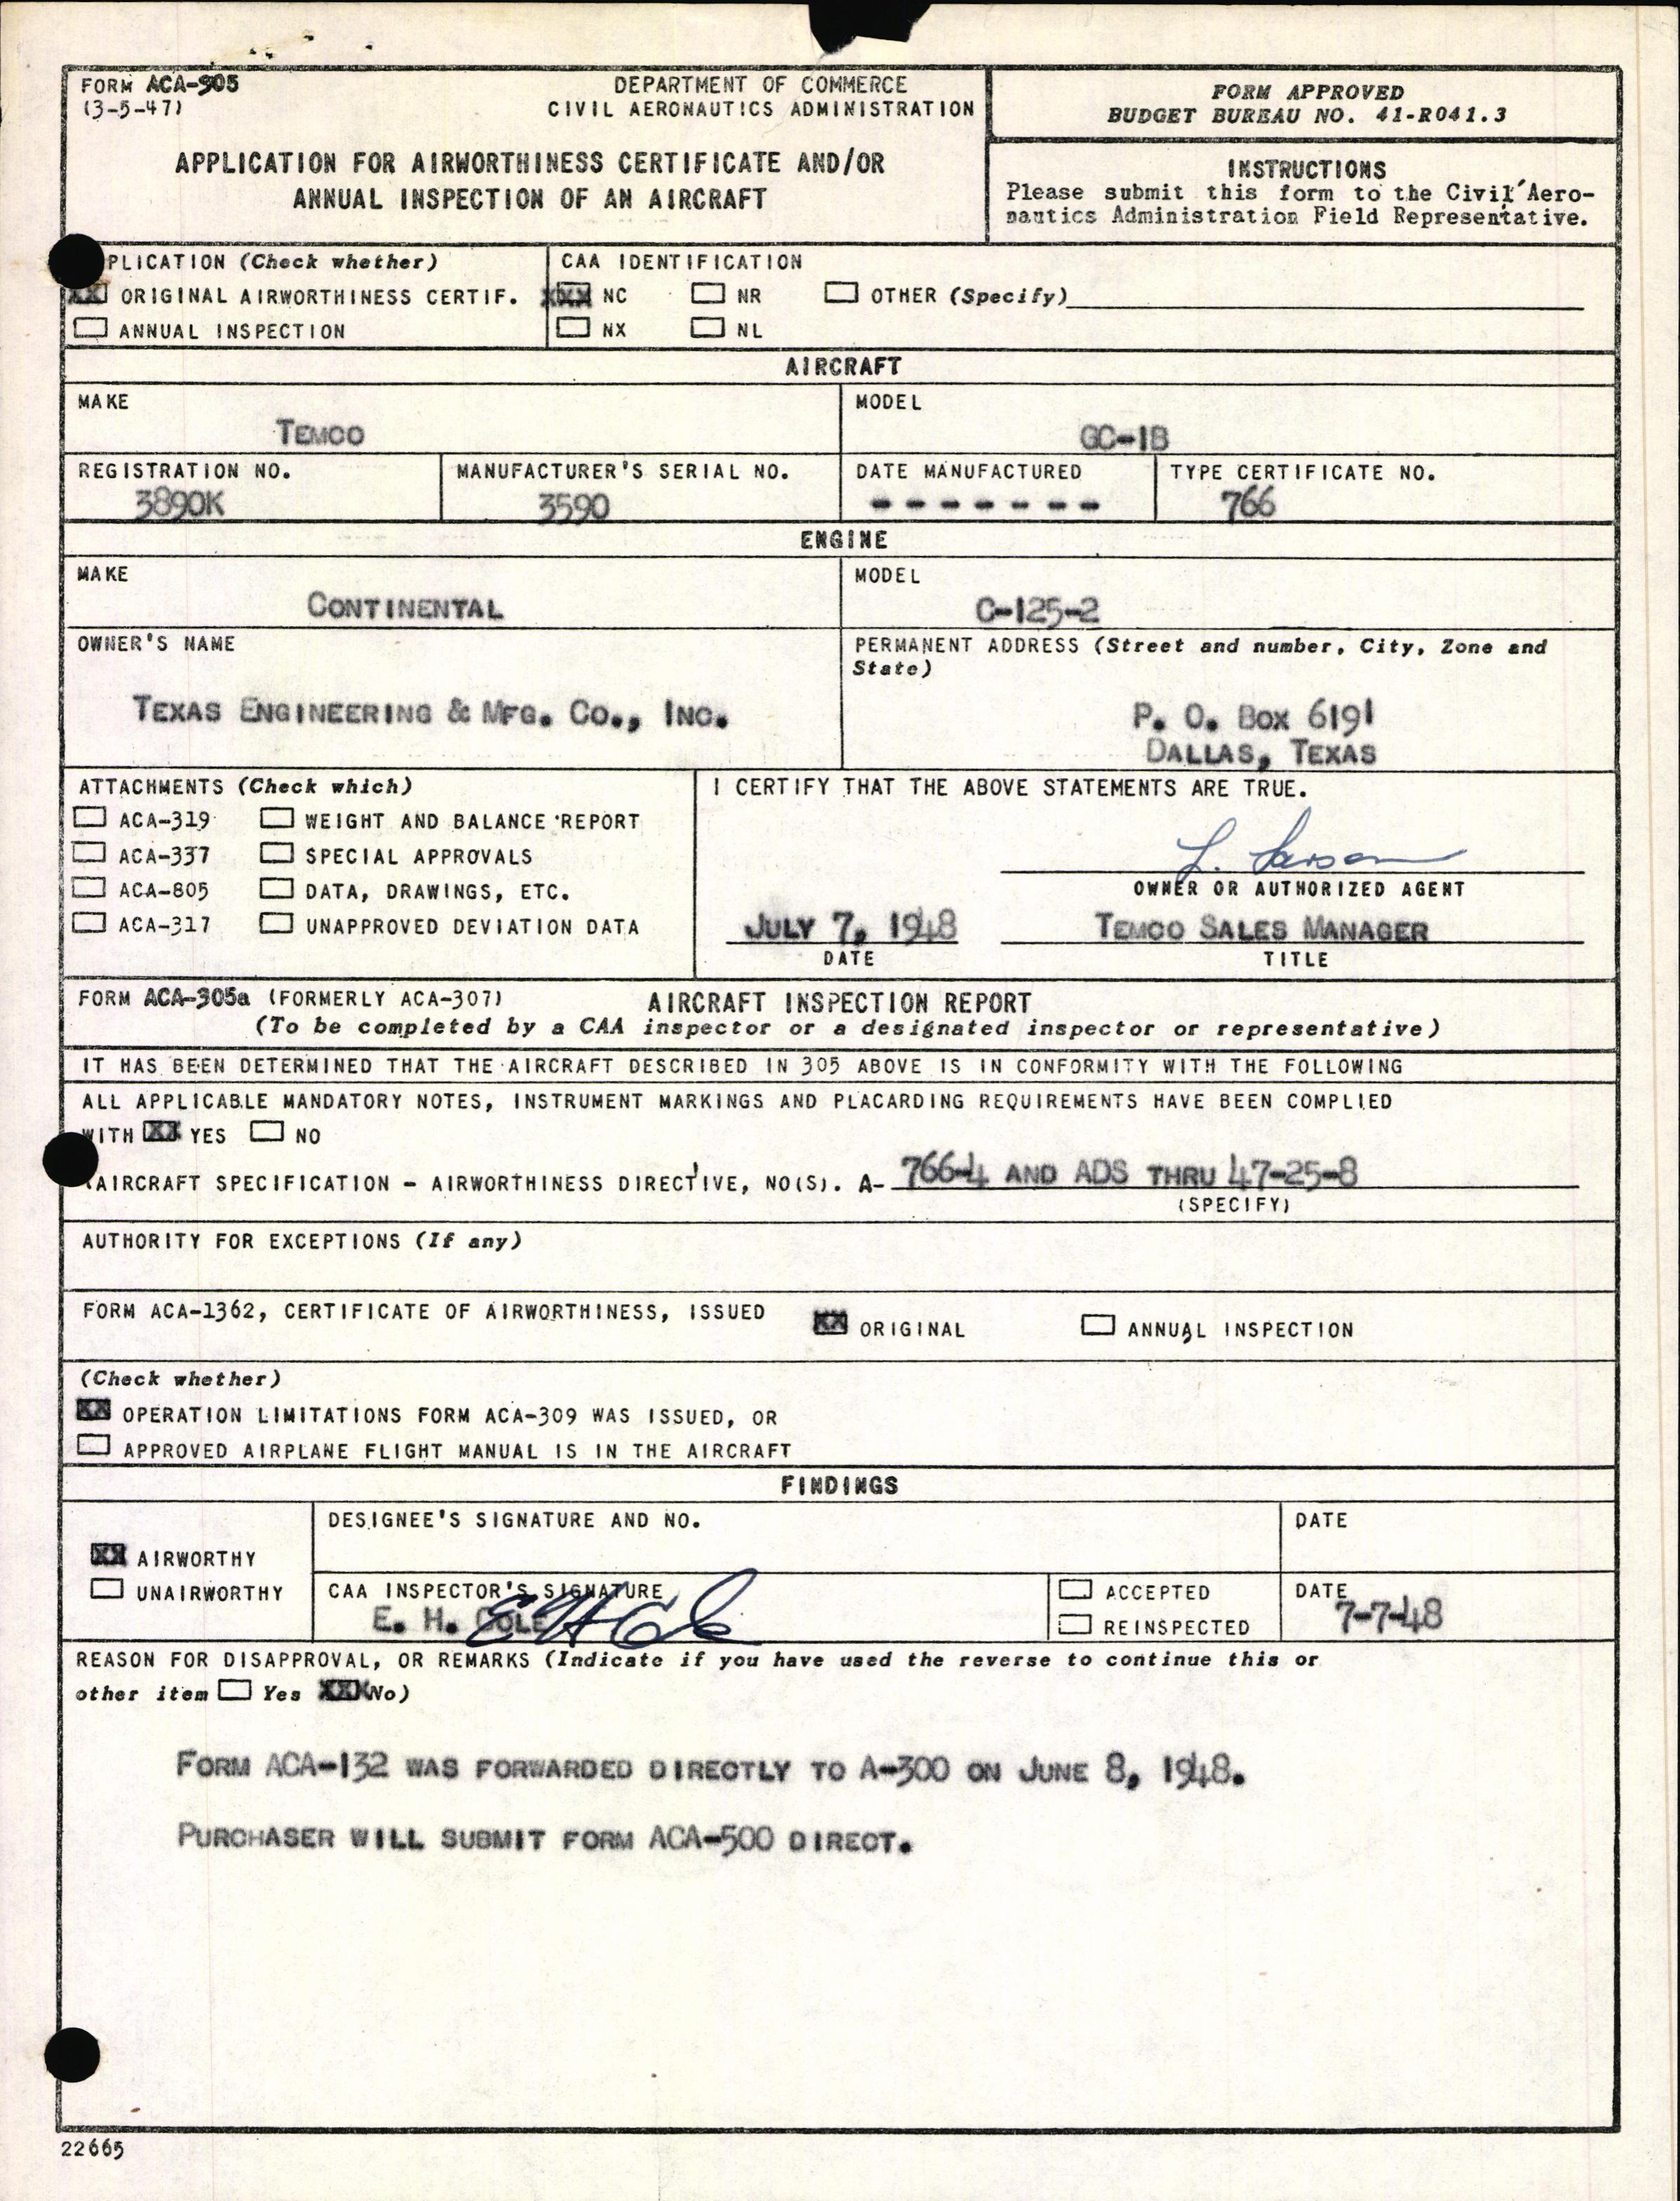 FORM ACA-305
(3-5-47)
DEPARTMENT OF COMMERCE
CIVIL AERONAUTICS ADMINISTRATION
APPLICATION FOR AIRWORTHINESS CERTIFICATE AND/OR
ANNUAL INSPECTION OF AN AIRCRAFT
FORM APPROVED
BUDGET BUREAU NO. 41-R041.3
INSTRUCTIONS
Please submit this form to the Civil Aero-
nautics Administration Field Representative.
PLICATION (Check whether)
XX ORIGINAL AIRWORTHINESS CERTIF.
ANNUAL INSPECTION
CAA IDENTIFICATION
XXX NC NR OTHER (Specify)
NX NL
AIRCRAFT
MAKE
TEMCO
MODEL
GC-1B
REGISTRATION NO.
3890K
MANUFACTURER'S SERIAL NO.
3590
DATE MANUFACTURED
- - - - - - -
TYPE CERTIFICATE NO.
766
ENGINE
MAKE
CONTINENTAL
MODEL
C-125-2
OWNER'S NAME
TEXAS ENGINEERING & MFG. CO., INC.
PERMANENT ADDRESS (Street and number, City, Zone and
State)
P. O. BOX 6191
DALLAS, TEXAS
ATTACHMENTS (Check which)
ACA-319 WEIGHT AND BALANCE REPORT
ACA-337 SPECIAL APPROVALS
ACA-805 DATA, DRAWINGS, ETC.
ACA-317 UNAPPROVED DEVIATION DATA
I CERTIFY THAT THE ABOVE STATEMENTS ARE TRUE.
L. Larson
OWNER OR AUTHORIZED AGENT
JULY 7, 1948 TEMCO SALES MANAGER
DATE TITLE
FORM ACA-305a (FORMERLY ACA-307) AIRCRAFT INSPECTION REPORT
(To be completed by a CAA inspector or a designated inspector or representative)
IT HAS BEEN DETERMINED THAT THE AIRCRAFT DESCRIBED IN 305 ABOVE IS IN CONFORMITY WITH THE FOLLOWING
ALL APPLICABLE MANDATORY NOTES, INSTRUMENT MARKINGS AND PLACARDING REQUIREMENTS HAVE BEEN COMPLIED
WITH XX YES NO
(AIRCRAFT SPECIFICATION - AIRWORTHINESS DIRECTIVE, NO(S). A- 766-4 AND ADS THRU 47-25-8
(SPECIFY)
AUTHORITY FOR EXCEPTIONS (If any)
FORM ACA-1362, CERTIFICATE OF AIRWORTHINESS, ISSUED XX ORIGINAL ANNUAL INSPECTION
(Check whether)
XX OPERATION LIMITATIONS FORM ACA-309 WAS ISSUED, OR
APPROVED AIRPLANE FLIGHT MANUAL IS IN THE AIRCRAFT
FINDINGS
XX AIRWORTHY
UNAIRWORTHY
DESIGNEE'S SIGNATURE AND NO.
DATE
CAA INSPECTOR'S SIGNATURE
E. H. COLE EHCole
ACCEPTED
REINSPECTED
DATE
7-7-48
REASON FOR DISAPPROVAL, OR REMARKS (Indicate if you have used the reverse to continue this or
other item Yes XXX No)
FORM ACA-132 WAS FORWARDED DIRECTLY TO A-300 ON JUNE 8, 1948.
PURCHASER WILL SUBMIT FORM ACA-500 DIRECT.
22665